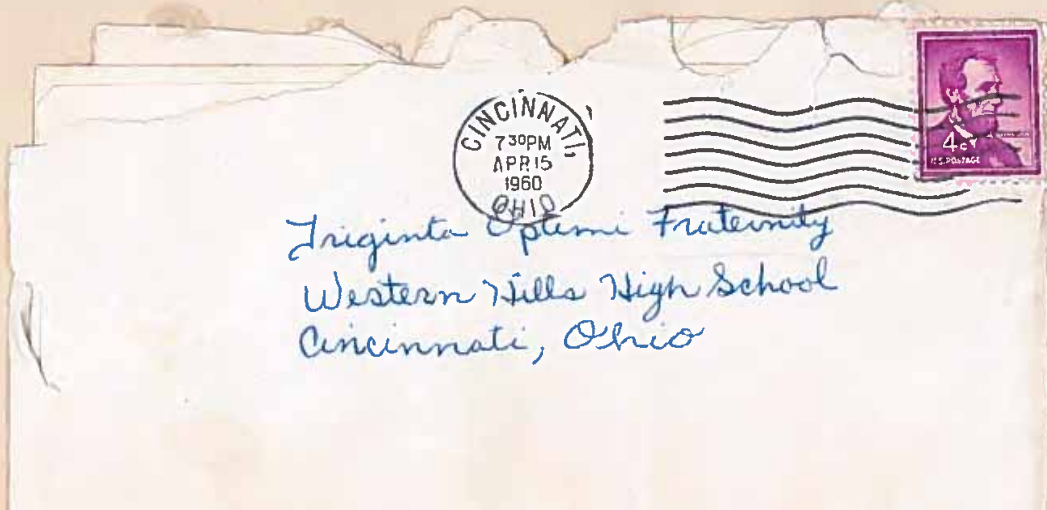 CINCINNATI,
7 30 PM
APR 15
1960
OHIO
4¢
U.S. POSTAGE
Triginta Optimi Fraternity
Western Hills High School
Cincinnati, Ohio